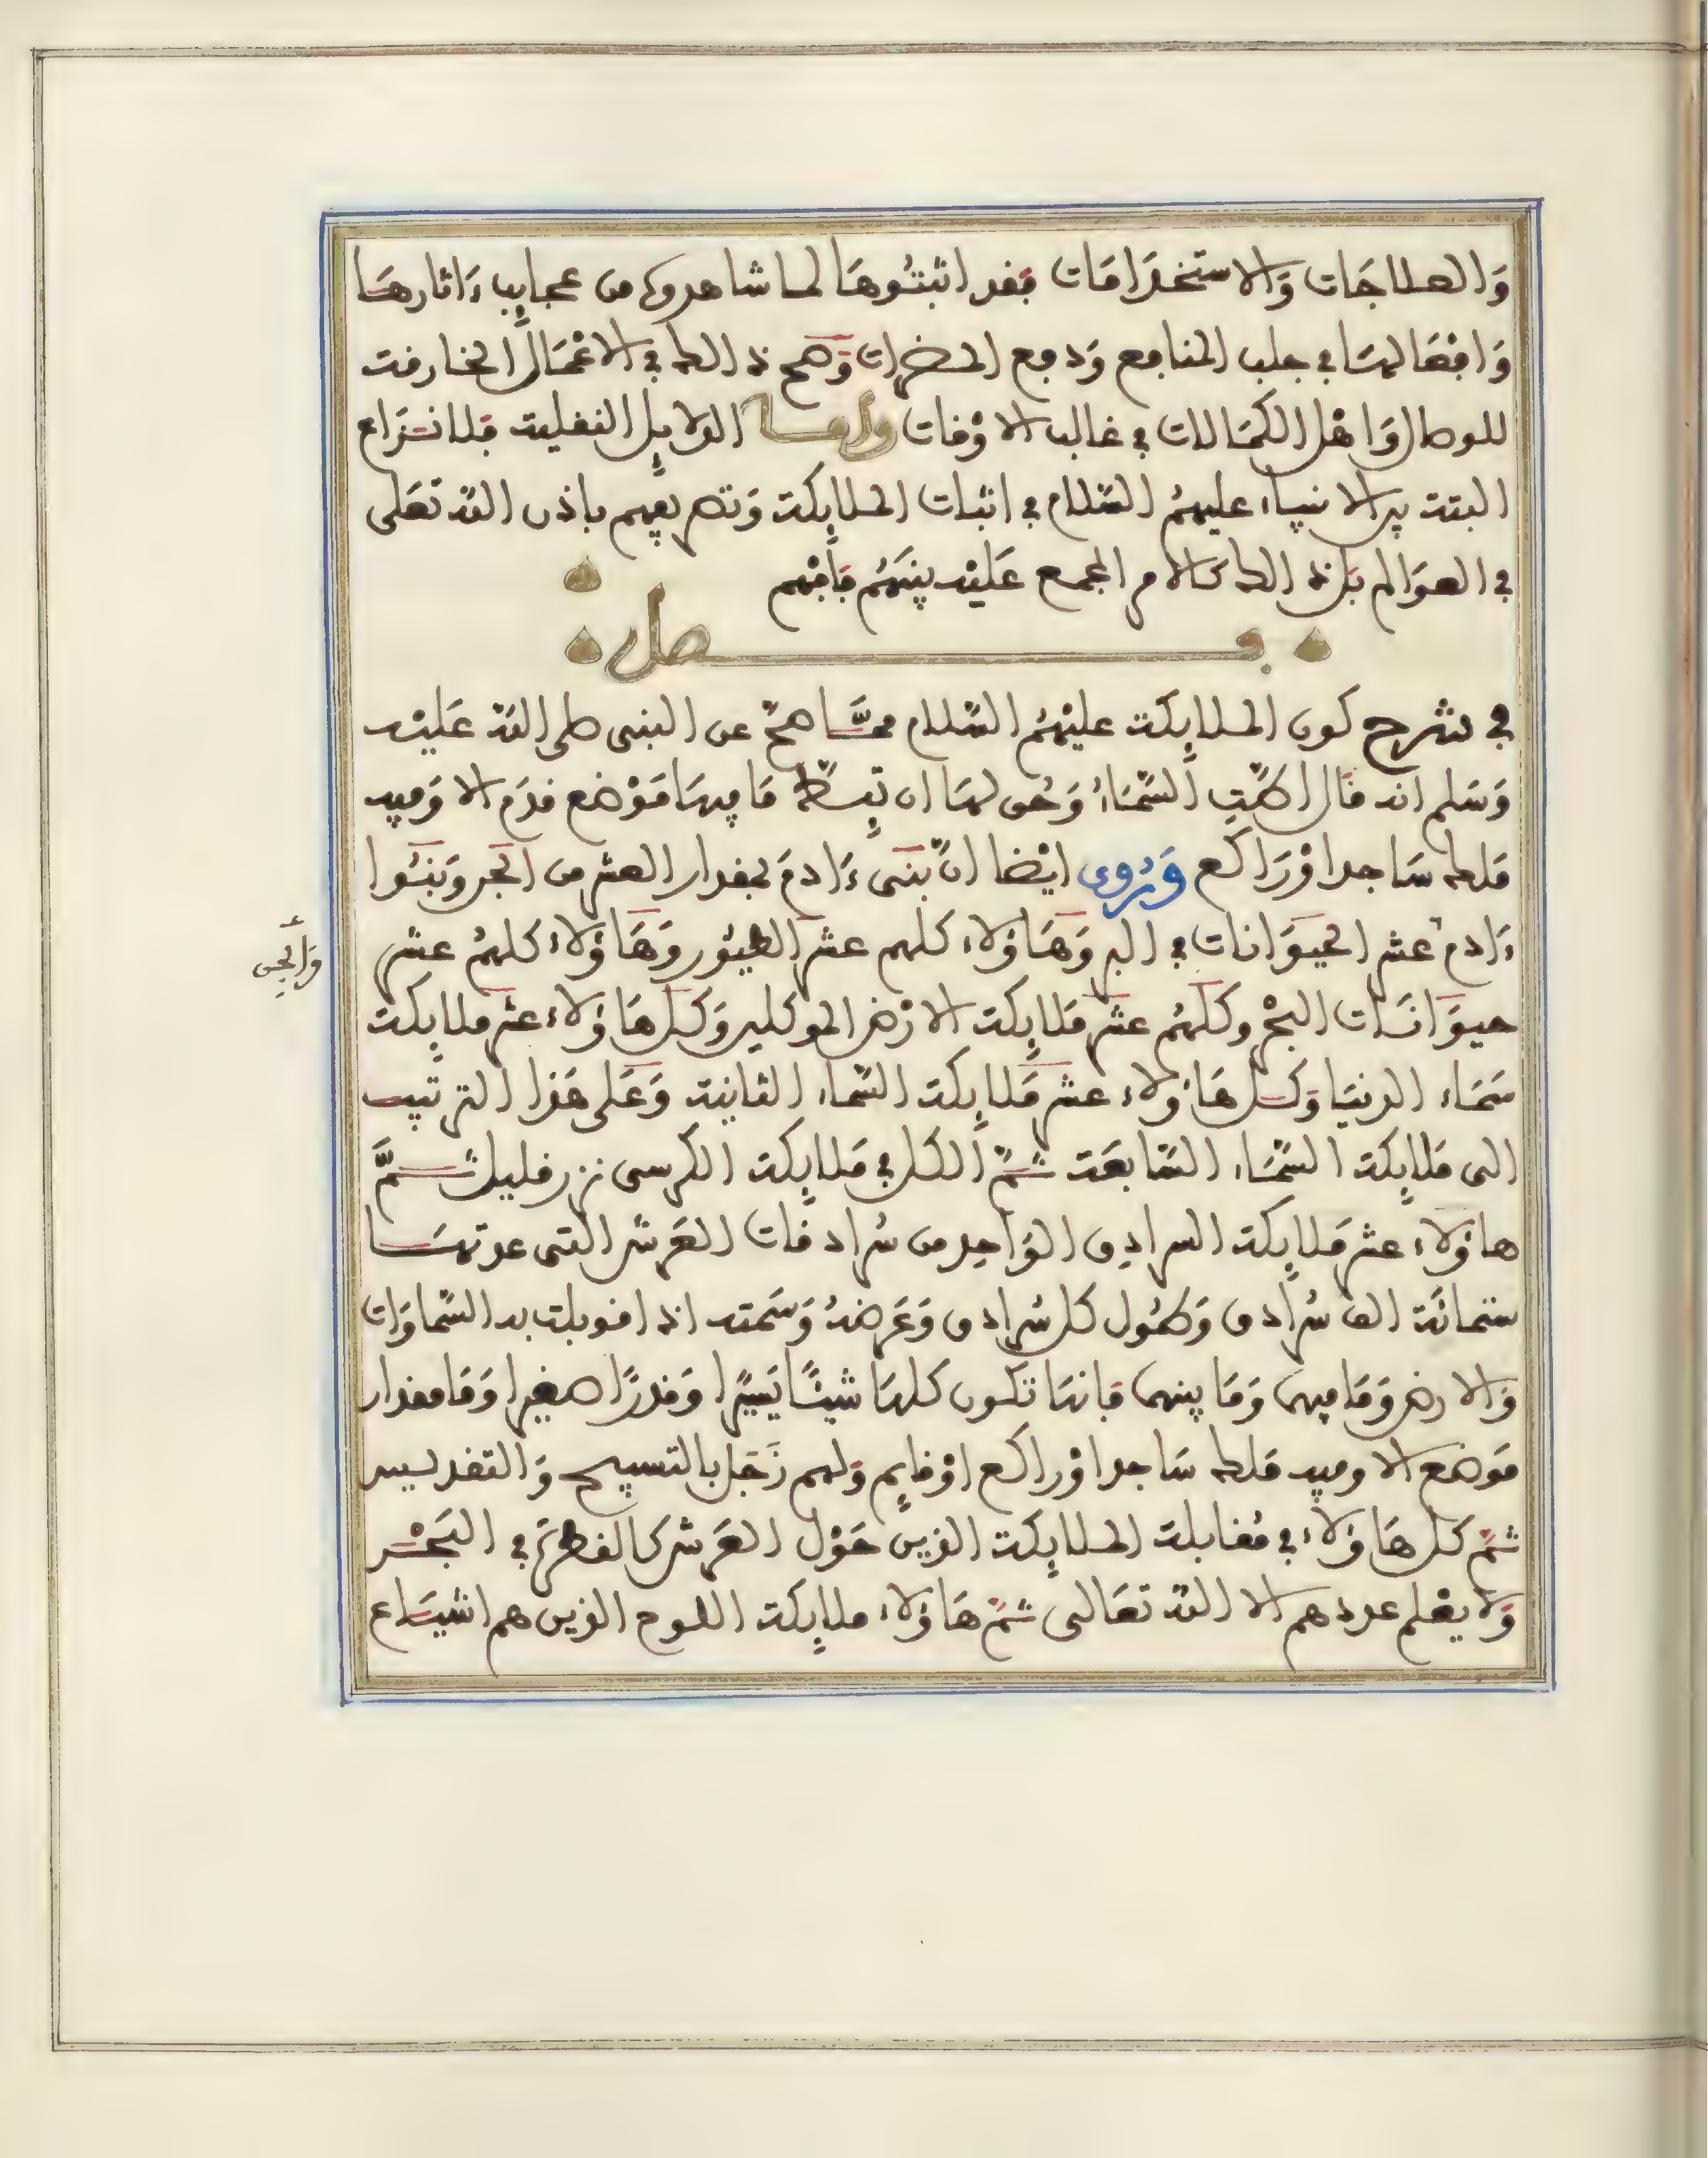 وَالعلاجَات وَالاستخدَامَات فقد اثبتُوهَا لما شاهدوه من عجايب ءَاثارهَا
وَافعَالهَا في جلب المنافع وَدفع المضرات وَصح ذالك في الاعْمَال الخارقة
للوصال وَاهْل الكمَالات في غالب الاوْقات وامــا الدلايل النقلية فلا نزَاع
البتة بين الانبياء عليهمُ السّلام في اثبات الملايكة وَتصريفهم باذن اللّه تعَلى
في العوَالم بَل ذالك كالامر المجمع عَليْه بينَهُم فافْهم
فــصل
في شرح كون الملايكة عليْهمُ السّلام ممَّا صحّ عن النبى صلى اللّه عَليْه
وَسَلم انه قَال اطّتِ السّمَاءُ وَحُق لهَا ان تيِطّ مَا فيهَا مَوْضع قدَم الا وَفيه
مَلك سَاجد اوْ رَاكع وَرُوى ايْضا انّ بَنى ءَادمَ لمقدار العشر من الجن وَبَنُوا
وَالْجن
ءَادم عشر الحيوَانات في البر وَهَاؤلاء كلهم عشر الطيُور وَهَاؤلاء كلهمُ عشر
حيوَانَات البحْر وكلهُم عشر مَلايكة الارْض الموكلين وَكل هَاؤلاء عشر ملايكة
سَمَاء الدنيَا وَكل هَاؤلاء عشر مَلايكة السّماء الثانية وَعَلى هَذا الترتيب
الى مَلايكة السّمَاء السّابعَة ثمّ الكل في مَلايكة الكرسى نزر قليل ثــمَّ
هاؤلاء عشر مَلايكة السرادِق الوَاحِد من سُرادقات العَرش التى عدتهَا
ستمائَة الف سُرادق وَطُول كل سُرادق وَعَرضهُ وَسَمْته اذا قوبلت به السّماوَات
وَالارض وَمَا فيهما وَمَا بينهما فانهَا تكون كلهَا شيئًا يَسيْرا وَقدرًا صغيرا وَمَا مقدار
مَوضع الا وفيه مَلك سَاجد اوْ راكع اوْ قايم وَلهم زَجَل بالتسبيح وَالتقديس
ثمّ كل هَاؤلاء في مُقابلة الملايكة الذين حَوْل العَرش كالقطْرَة في البَحْر
وَلا يعْلم عددهم الا اللّه تعَالى ثمّ هَاؤلاء ملايكة اللوح الذين هم اشيَاع